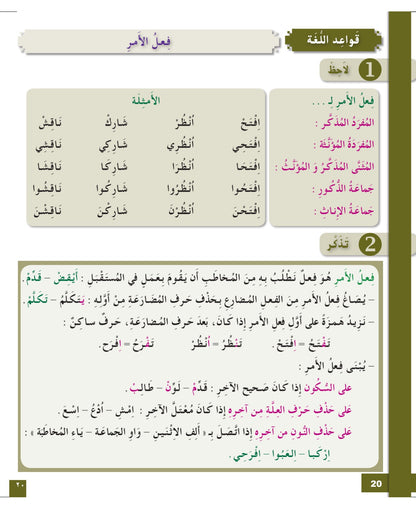 قَواعِد اللُّغَة
فِعلُ الأَمرِ
1 لاحِظْ
فِعلُ الأَمرِ لِـ ... الأَمثِلَة
المُفرَدُ المُذَكَّر : اِفتَحْ اُنْظُرْ شارِكْ ناقِشْ
المُفرَدَةُ المُؤَنَّثَة : اِفتَحِي اُنْظُرِي شارِكِي ناقِشِي
المُثَنَّى المُذَكَّرُ وَ المُؤَنَّثُ : اِفتَحَا اُنْظُرَا شارِكَا ناقِشَا
جَماعَةُ الذُّكورِ : اِفتَحُوا اُنْظُرُوا شارِكُوا ناقِشُوا
جَماعَةُ الإِناثِ : اِفتَحْنَ اُنْظُرْنَ شارِكْنَ ناقِشْنَ
2 تَذَكَّرْ
فِعلُ الأَمرِ هُوَ فِعلٌ نَطلُبُ بِـهِ مِنَ المُخاطَبِ أَن يَقومَ بِعَمَلٍ في المُستَقبَلِ : أَيقِضْ – قَدِّمْ.
– يُصَاغُ فِعلُ الأَمرِ مِنَ الفِعلِ المُضارِعِ بِحَذفِ حَرفِ المُضارَعَةِ مِنْ أَوَّلِهِ : يَتَكَلَّمُ – تَكَلَّمْ.
– نَزيدُ هَمزَةً على أَوَّلِ فِعلِ الأَمرِ إِذا كانَ، بَعدَ حَرفِ المُضارَعَةِ، حَرفٌ ساكِنٌ :
تَفْتَحُ = اِفْتَحْ. تَنْظُرُ = اُنْظُرْ تَفْرَحُ = اِفْرَح.
– يُبْنَى فِعلُ الأَمرِ :
على السُّكون إِذا كانَ صَحيحَ الآخِرِ : قَدِّمْ – لَوِّنْ – طالِبْ.
على حَذْفِ حَرْفِ العِلَّةِ مِن آخِرِهِ إِذا كانَ مُعْتَلَّ الآخِرِ : اِمْشِ – اُدْعُ – اِسْعَ.
على حَذْفِ النّونِ مِن آخِرِهِ إِذا اتَّصَلَ بِـ « أَلِفِ الاِثْنَيـنِ – واوِ الجَماعَةِ – ياءِ المُخاطَبَةِ » :
اِرْكَبـا – اِلعَبُوا – اِفْرَحِي.
20
٢٠